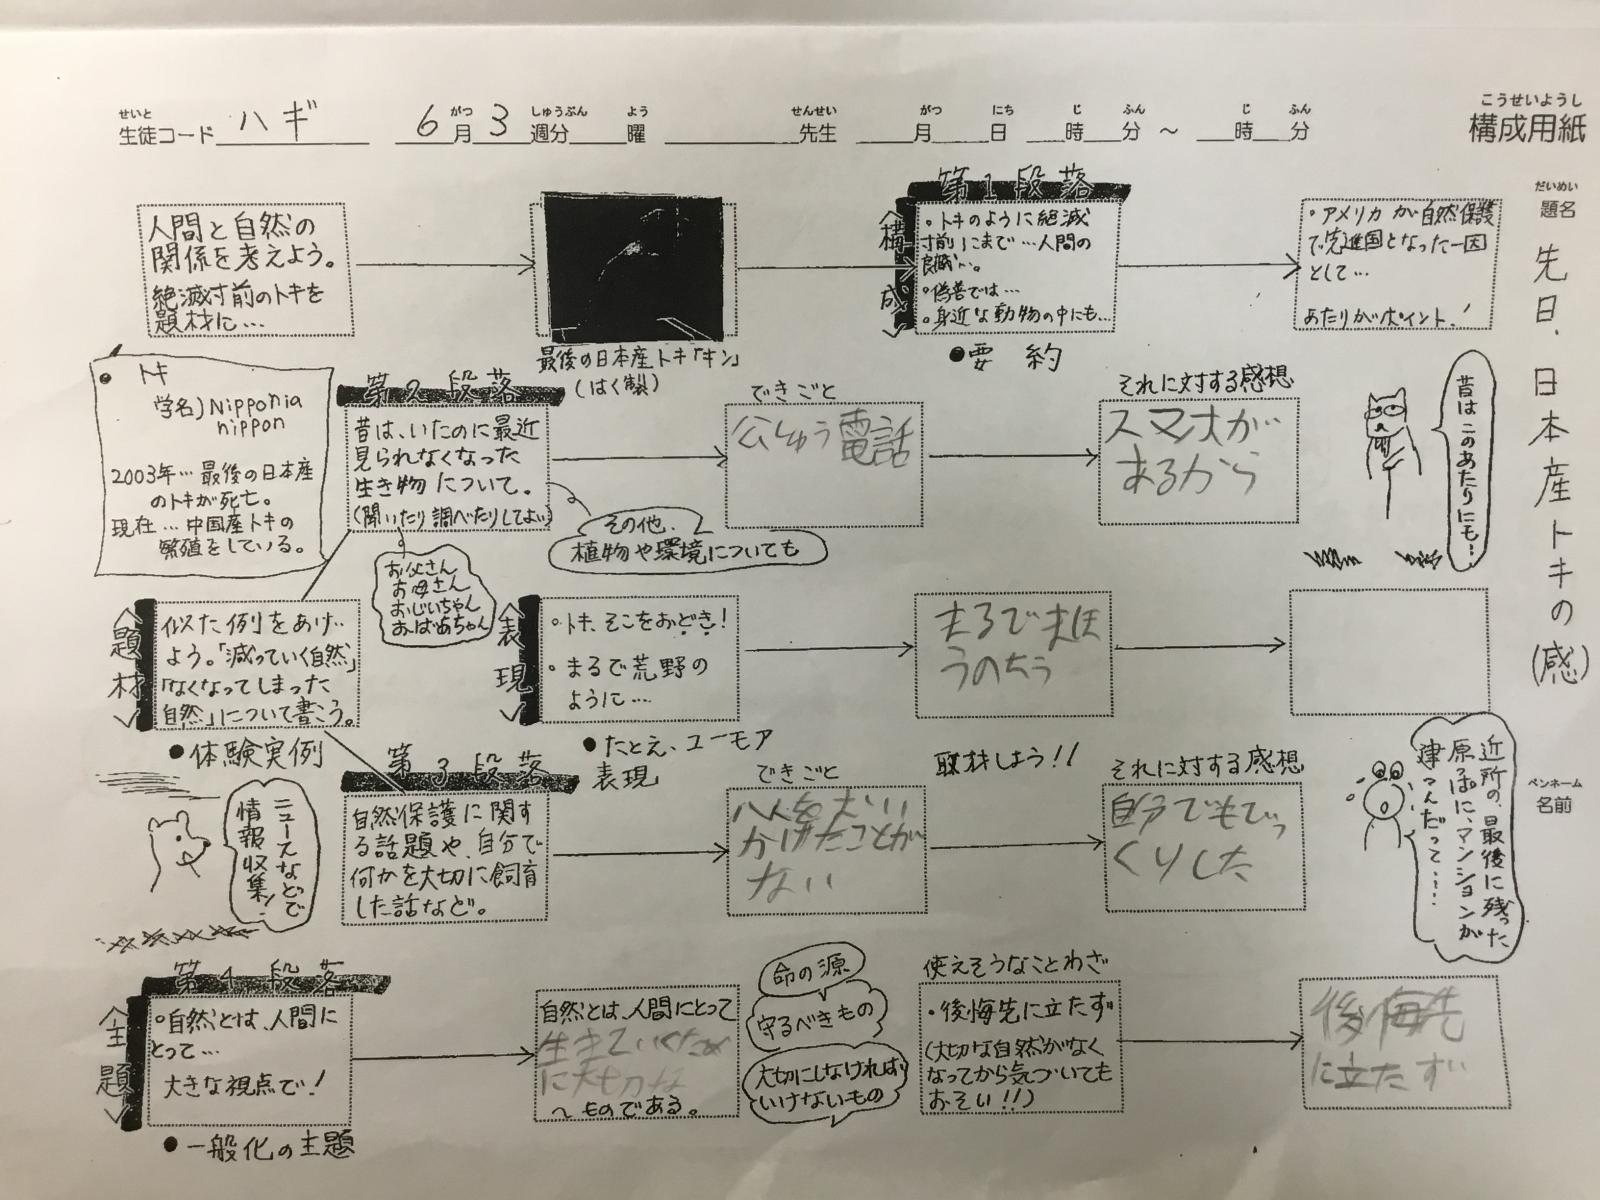 せいと
がつ
しゅうぶん
よう
せんせい
がつ
にち
じ
ふん
じ
ふん
生徒コード ハギ 6月3週分 曜 先生 月 日 時 分 〜 時 分
こうせいようし
構成用紙
だいめい
題名
先日、日本産トキの(感)
ペンネーム
名前
人間と自然の
関係を考えよう。
絶滅寸前のトキを
題材に…
最後の日本産トキ「キン」
(はく製)
第1段落
<構成>
・トキのように絶滅
寸前にまで…人間の
…。
・偽善では…
・身近な動物の中にも…
●要約
・アメリカが自然保護
で先進国となった一因
として…
あたりがポイント!
トキ
学名)Nipponia
nippon
2003年…最後の日本産
のトキが死亡。
現在…中国産トキの
繁殖をしている。
第2段落
昔は、いたのに最近
見られなくなった
生き物について。
(聞いたり調べたりしてよい)
お父さん
お母さん
おじいちゃん
おばあちゃん
その他、
植物や環境についても
できごと
公しゅう電話
それに対する感想
スマホが
あるから
昔はこのあたりにも…
<題材>
似た例をあげ
よう。「減っていく自然」
「なくなってしまった
自然」について書こう。
●体験実例
<表現>
・トキ、そこをおどき!
・まるで荒野の
ように…
●たとえ、ユーモア
表現
まるでまほ
うのちう
ニュースなどで
情報収集!
第3段落
自然保護に関す
る話題や、自分で
何かを大切に飼育
した話など。
できごと
かけたことが
ない
取材しよう!!
それに対する感想
自分でもびっ
くりした
近所の、最後に残った
原っぱに、マンションが
建つんだって……
第4段落
<主題>
・自然とは、人間に
とって…
大きな視点で!
●一般化の主題
自然とは、人間にとって
生きていくため
に大切な
〜ものである。
命の源
守るべきもの
大切にしなければ
いけないもの
使えそうなことわざ
・後悔先に立たず
(大切な自然がなく
なってから気づいても
おそい!!)
後悔先
に立たず